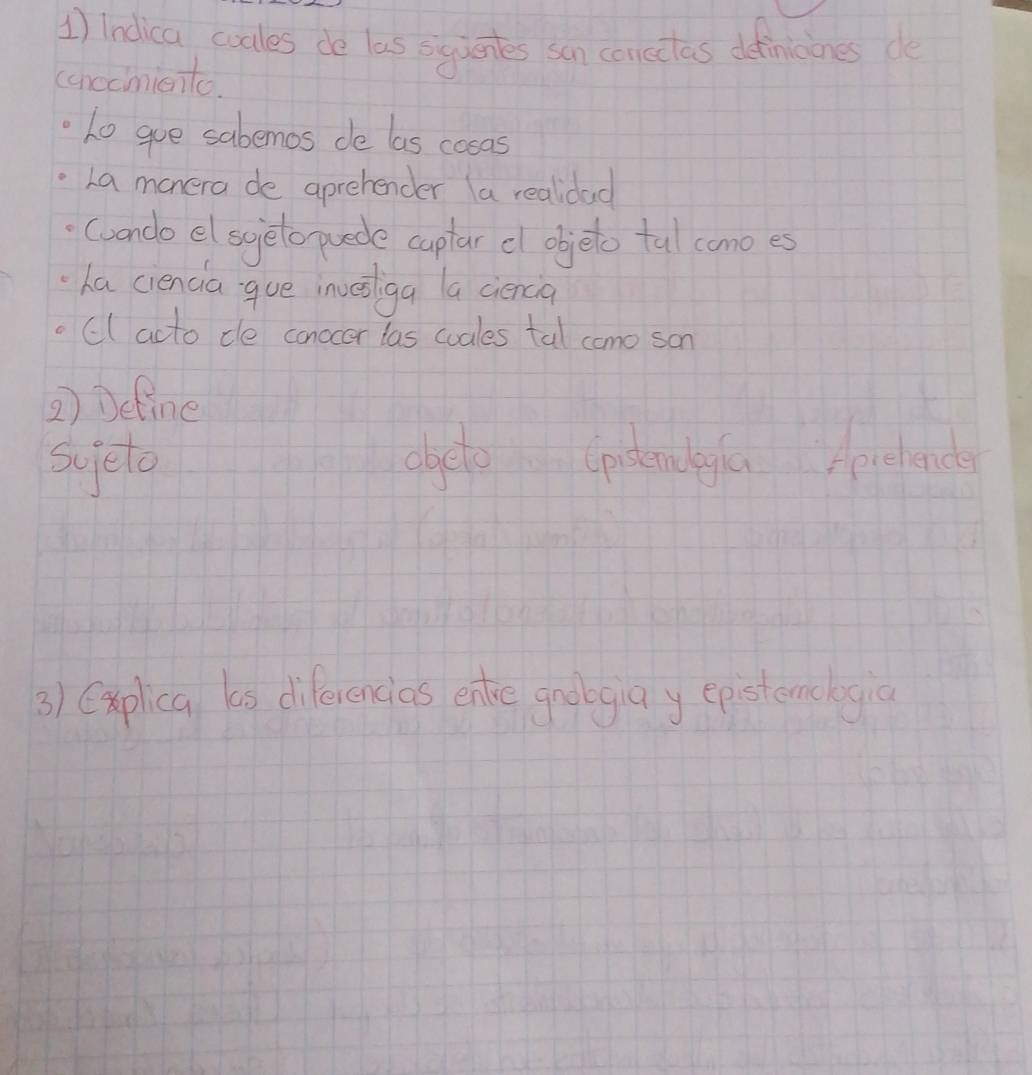 1) Indica cuales de las siguientes son correctas definiciones de
conocimiento.
• Lo que sabemos de las cosas
• La manera de aprehender la realidad
• Cuando el sujeto puede captar el objeto tal como es
• La ciencia que investiga la ciencia
• El acto de conocer las cuales tal como son
2) Define
Sujeto objeto Epistemología Aprehender
3) Explica las diferencias entre gnologia y epistemologia